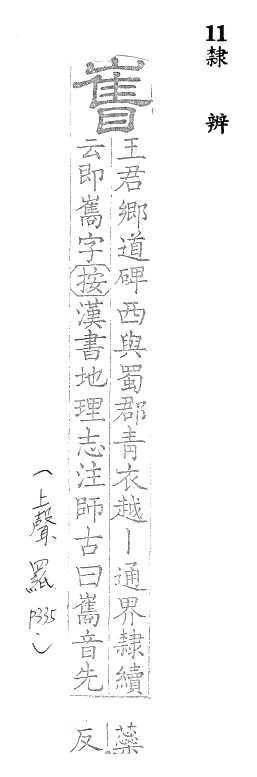 11 隸辨
王君鄉道碑西與蜀郡青衣越丨通界隸續
云即嶲字按漢書地理志注師古曰嶲音先
蘂
反
(上聲 四紙 p335)